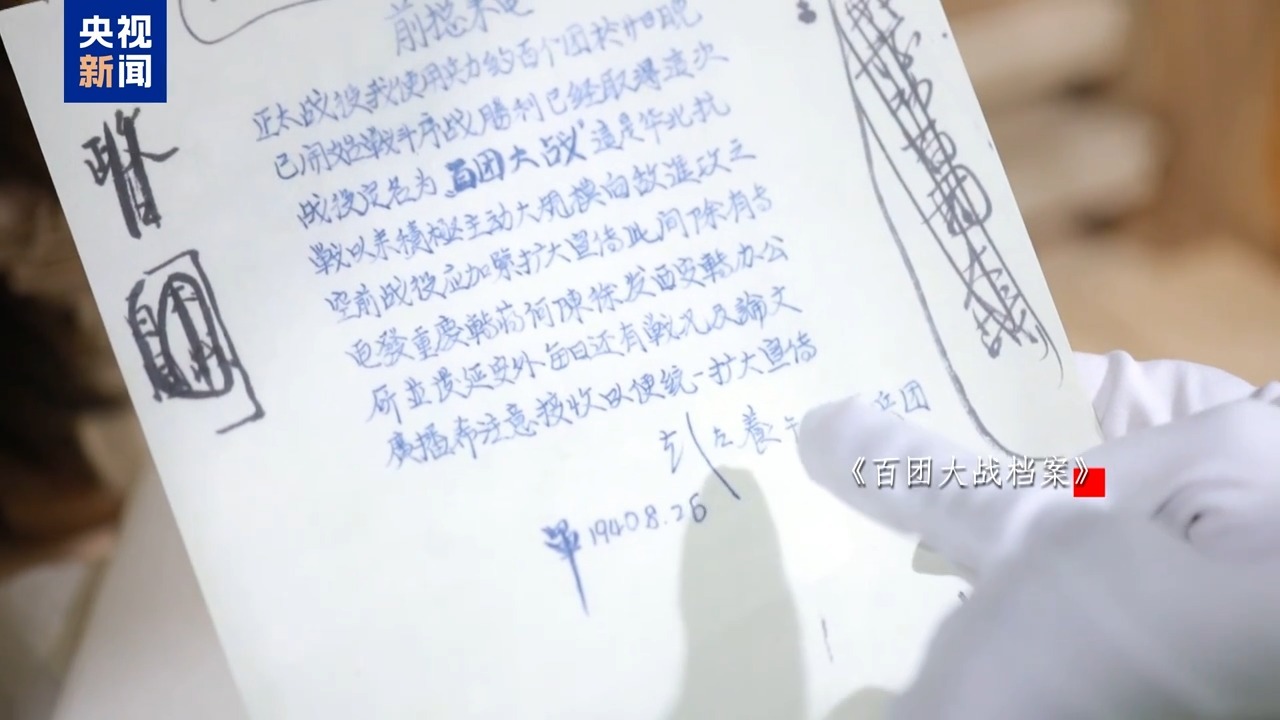 央视
新闻
前总来电
正太战役我使用兵力约百个团于廿日晚
已開始戰斗序战勝利已经取得這次
战役定名为“百团大战”這是华北抗
戰以来積極主动大規模向敌進攻之
空前战役应加緊扩大宣传此间除有专
电發重慶轉蒋何陳徐发西安轉办公
所並误延安外每日还有戰况及論文
廣播希注意接收以便统一扩大宣传
彭左養午
兵团
1940.8.26
《百团大战档案》